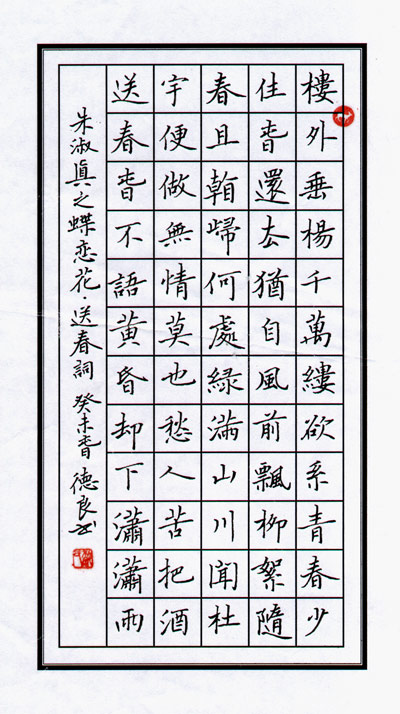 樓外垂楊千萬縷欲系青春少
住旾還厺猶自風前飄柳絮隨
春且看㱕何處緑滿山川聞杜
宇便做無情莫也愁人苦把酒
送春旾不語黃昏却下瀟瀟雨
朱淑眞之蝶恋花·送春詞 癸未旾 德良书